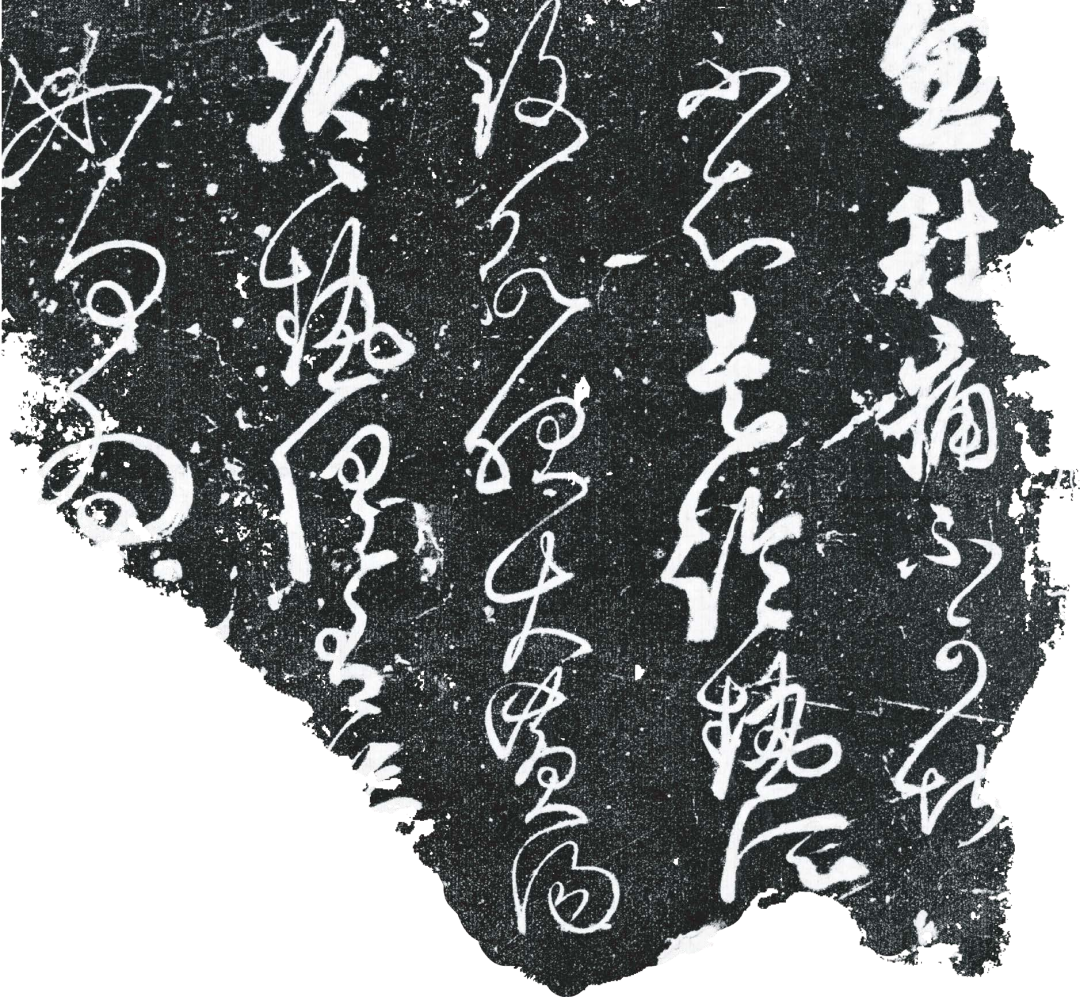 忽肚痛不可堪
不知是冷熱所
致欲服大黃湯
冷熱俱有益
如何為